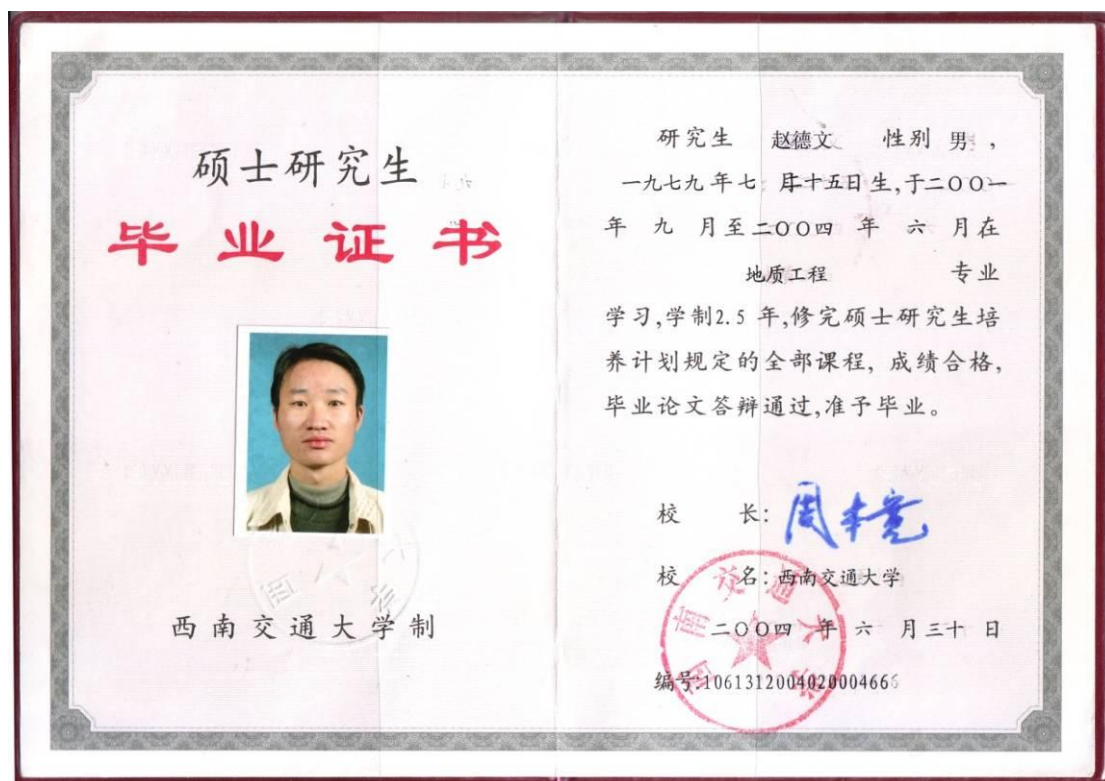 硕士研究生
毕业证书
西南交通大学制
研究生 赵德文 性别 男，
一九七九年七 月二十五日生,于二〇〇一
年 九 月至二〇〇四 年 六 月在
地质工程 专业
学习,学制2.5 年,修完硕士研究生培
养计划规定的全部课程, 成绩合格,
毕业论文答辩通过,准予毕业。
校 长:
校 名: 西南交通大学
西南交通大学
二〇〇四 年 六 月三十 日
编号:106131200402000466